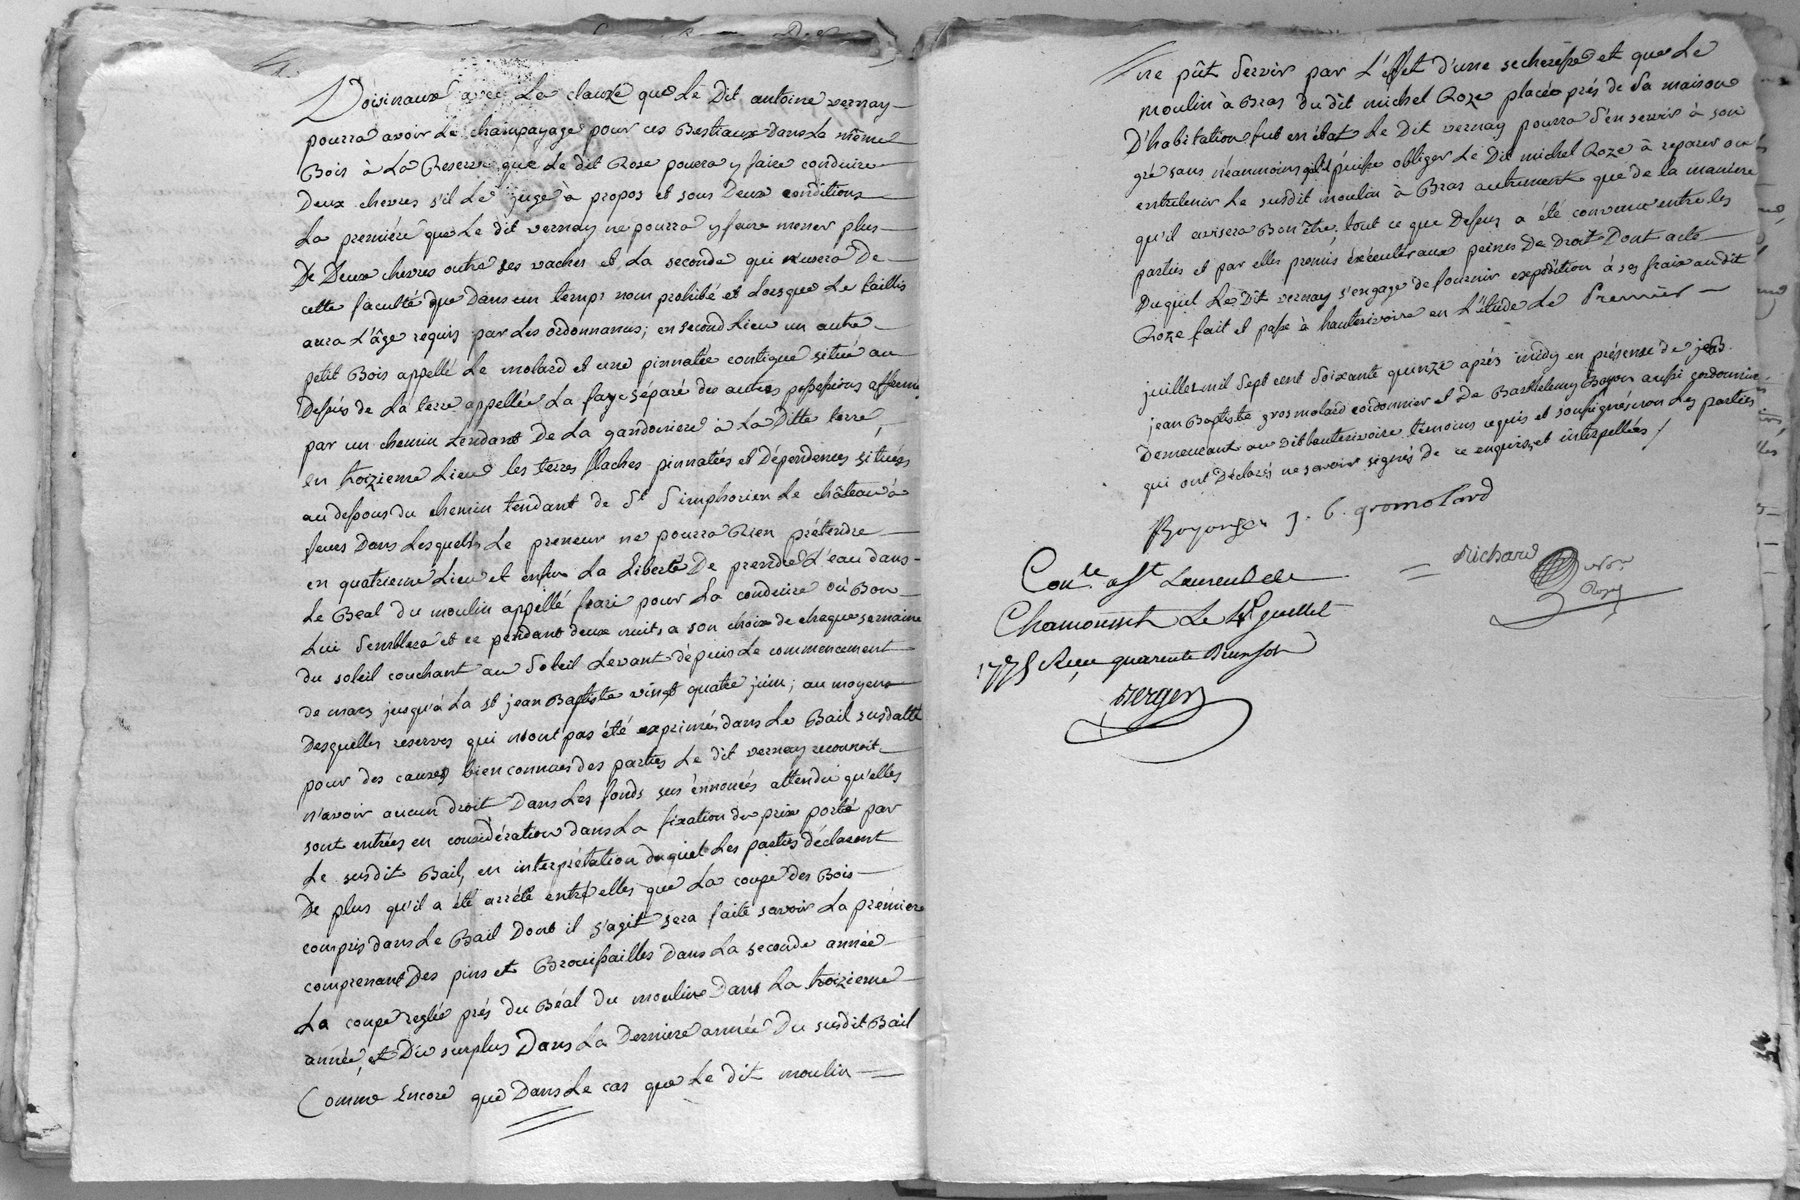 Voisinaux avec La clauze que Le Dit antoine vernay
pourra avoir Le champayage pour ces Bestiaux dans La même
Bois à La Reserve que Le dit Roze pourra y faire conduire
Deux chevres s'il Le juge à propos et sous Deux conditions
La premiére que Le dit vernay ne pourra y faire mener plus
De Deux chevres outre ses vaches et La seconde qui n'usera De
cette faculté que Dans un temps non prohibé et Lorsque Le taillis
aura L'âge requis par Les ordonnances; en second Lieu un autre
petit Bois appellé Le molard et une pinnatée contigue située au
Dessus de La terre appellée La faye séparé des autres possessions affermé
par un chemin tendant De La gandoniere à La Ditte terre,
en troizieme Lieu les terres flaches pinnatées et Dépendences situées
au dessous du chemin tendant de St Simphorien Le château à
feurs Dans Lesquels Le preneur ne pourra Rien prétendre
en quatrieme Lieu et enfin La Liberté De prendre L'eau dans
Le Béal du moulin appellé pour La conduire où Bon
Lui Semblera et ce pendant deux nuits a son choix de chaque semaine
du soleil couchant au Soleil Levant dépuis Le commencement
de mars jusqu'à La st jean Baptiste vingt quatre juin; au moyens
Desquelles reserves qui n'ont pas été exprimés dans Le Bail susdatté
pour des causes bien connues des parties Le dit vernay reconnoit
n'avoir aucun droit Dans Les fonds sus énnoncés attendu qu'elles
sont entrées en considération dans La fixation du prix porté par
Le susdit Bail, en interprétation duquel Les parties déclarent
De plus qu'il a été arrété entre elles que La coupe des Bois
compris dans Le Bail Dont il s'agit sera faite savoir La premiere
comprenant Des pins et Broussailles Dans La seconde année
La coupe reglée prés du Béal du moulin Dans La troizieme
année, et Du surplus Dans La Derniere année Du susdit Bail
Comme Encore que Dans Le cas que Le dit moulin
ne pût Servir par L'effet d'une secheresse et que Le
moulin à Bras du dit michel Roze placée prés de Sa maison
D'habitation fut en état Le Dit vernay pourra S'en servir à son
gré sans néanmoins qu'il puisse obliger Le Dit michel Roze à reparer ou
entretenir Le susdit moulin à Bras autrement que de la maniere
qu'il avisera Bon être. tout ce que Dessus a été convenu entre les
parties et par elles promis éxécuter aux peines De Droit Dont acte
Duquel Le Dit vernay s'engage de fournir expédition à ses fraix audit
Roze fait et passé à hauterivoire en L'étude Le Premier
juillet mil Sept cent Soixante quinze après midy en présense de
jean Baptiste grosmolard cordonnier et De Barthelemy Boyon aussi cordonnier
Demeurant au dit hauterivoire temoins requis et soussignés non Les parties
qui ont Déclaré ne savoir signer De ce enquises et interpellées /
J. B. gromolard
Richard
Con.le a St Laurent de
Chamousset Le Juillet
1775 Reçu quarente Deux sol